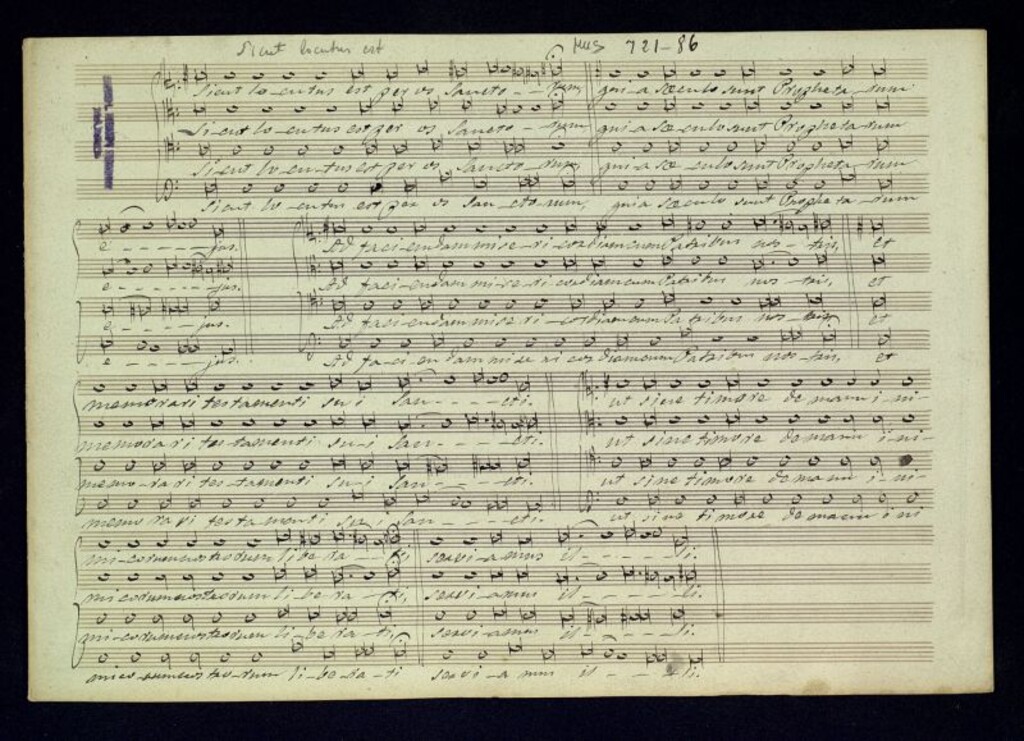 Sicut locutus est Mus 721-86
Sicut lo-cutus est per os Sancto - - rum, qui-a sæculo sunt Propheta-rum
Si-cut lo-cutus est per os Sancto - rum qui-a sæ-culo sunt Propheta-rum
Si-cut lo-cutus est per os Sancto rum, qui-a sæ-culo sunt Propheta-rum
Sicut lo-cutus est per os San-cto-rum, qui-a sæculo sunt Propheta-rum
e - - - - - jus. Ad faci-endam mise-ri-cordiam cum Patribus nos-tris, et
e - - - - - jus. Ad faci-endam mi-se-ri-cordiam cum Patribus nos-tris, et
e - - - - jus. Ad faci-endam mise ri-cordiam cum Patribus nos-tris, et
e - - - jus. Ad fa-ci en dam mise ri cordiam cum Patribus nos-tris, et
memorari testamenti su-i San - - - - cti. ut sine timore de manu i-ni-
memorari tes-tamenti su-i San - - - cti. ut sine timore de manu i-ni-
memo-rari tes-tamenti su-i San - - - cti. ut sine timore de manu i-ni
memorari testamenti su-i San - - - cti. ut sine timore de manu i ni
mi-corum nostrorum libe ra - - ti, servi-amus il - - - - li.
micorum nostrorum li-be-ra - ti, servi-amus il - - - - li.
mi-corum nostrorum li-be ra-ti, servi-amus il - - - - li.
mico-rum nostro-rum li-be-ra-ti servi-a mus il - - - li.